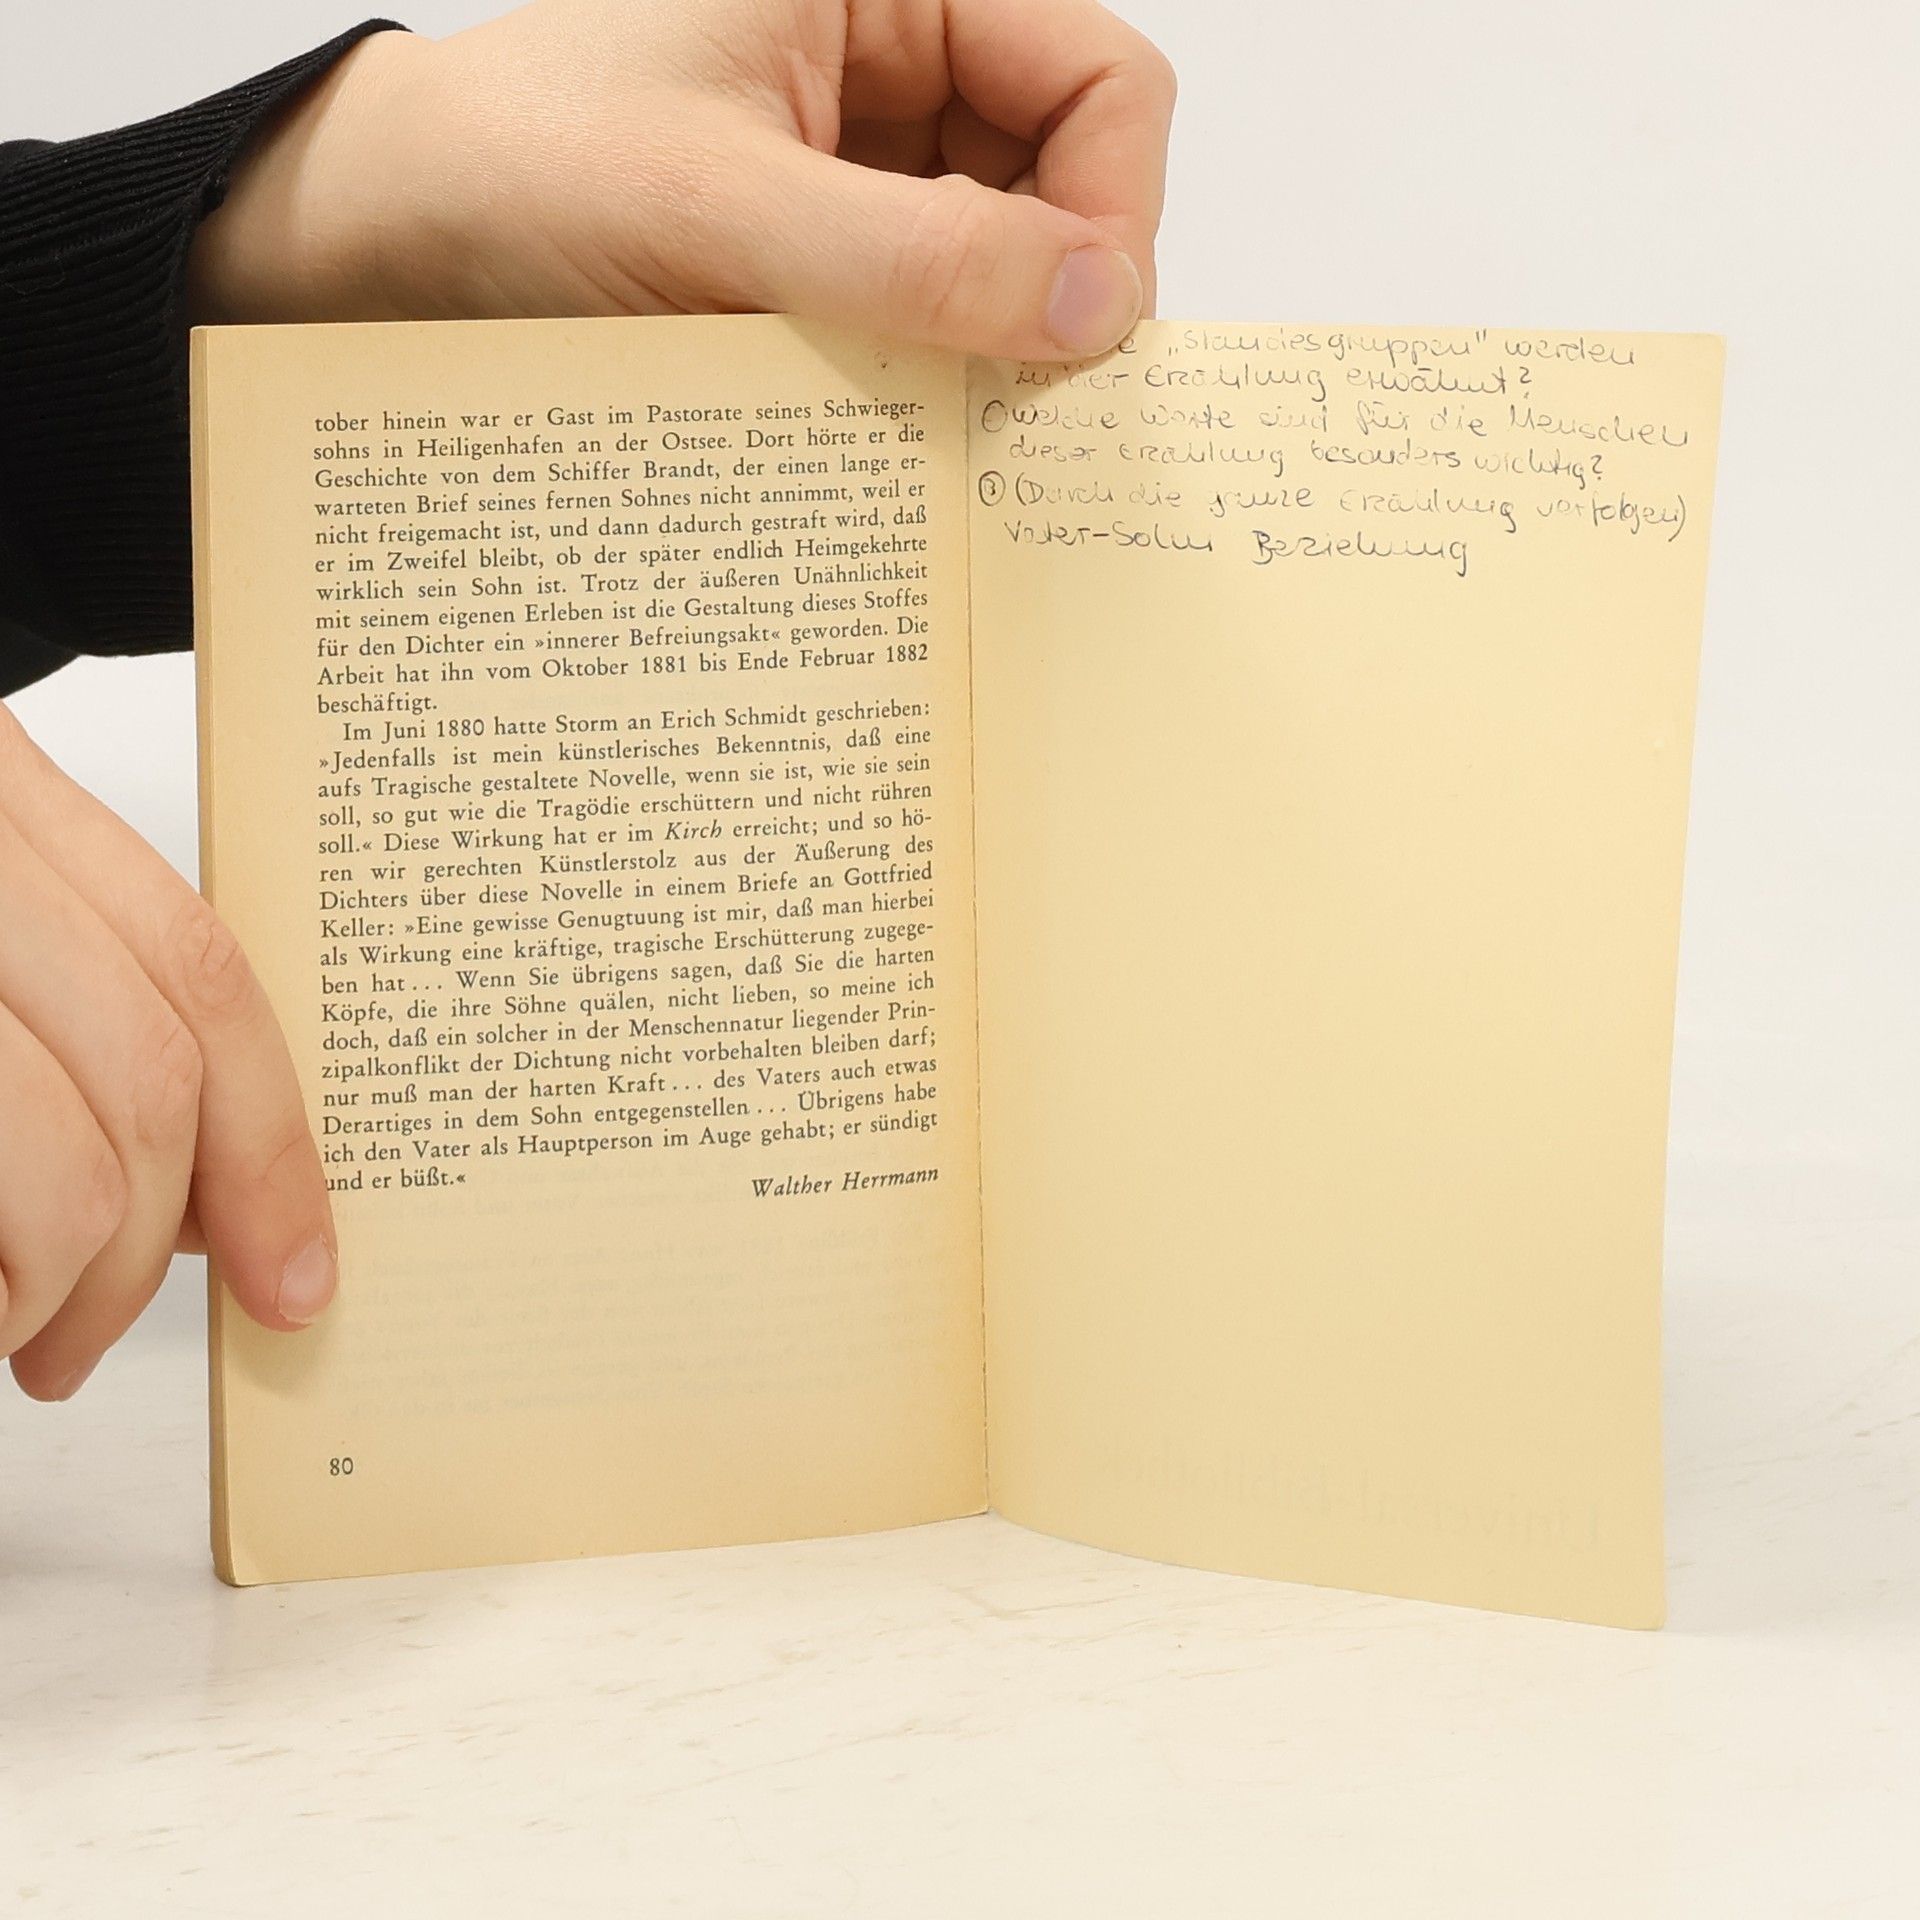 tober hinein war er Gast im Pastorate seines Schwieger-
sohns in Heiligenhafen an der Ostsee. Dort hörte er die
Geschichte von dem Schiffer Brandt, der einen lange er-
warteten Brief seines fernen Sohnes nicht annimmt, weil er
nicht freigemacht ist, und dann dadurch gestraft wird, daß
er im Zweifel bleibt, ob der später endlich Heimgekehrte
wirklich sein Sohn ist. Trotz der äußeren Unähnlichkeit
mit seinem eigenen Erleben ist die Gestaltung dieses Stoffes
für den Dichter ein »innerer Befreiungsakt« geworden. Die
Arbeit hat ihn vom Oktober 1881 bis Ende Februar 1882
beschäftigt.
Im Juni 1880 hatte Storm an Erich Schmidt geschrieben:
»Jedenfalls ist mein künstlerisches Bekenntnis, daß eine
aufs Tragische gestaltete Novelle, wenn sie ist, wie sie sein
soll, so gut wie die Tragödie erschüttern und nicht rühren
soll.« Diese Wirkung hat er im Kirch erreicht; und so hö-
ren wir gerechten Künstlerstolz aus der Äußerung des
Dichters über diese Novelle in einem Briefe an Gottfried
Keller: »Eine gewisse Genugtuung ist mir, daß man hierbei
als Wirkung eine kräftige, tragische Erschütterung zugege-
ben hat... Wenn Sie übrigens sagen, daß Sie die harten
Köpfe, die ihre Söhne quälen, nicht lieben, so meine ich
doch, daß ein solcher in der Menschennatur liegender Prin-
zipalkonflikt der Dichtung nicht vorbehalten bleiben darf;
nur muß man der harten Kraft... des Vaters auch etwas
Derartiges in dem Sohn entgegenstellen... Übrigens habe
ich den Vater als Hauptperson im Auge gehabt; er sündigt
und er büßt.«
Walther Herrmann
80
„Standesgruppen" werden
in der Erzählung erwähnt?
Welche Werte sind für die Menschen
dieser Erzählung besonders wichtig?
③ (Durch die ganze Erzählung verfolgen)
Vater-Sohn Beziehung